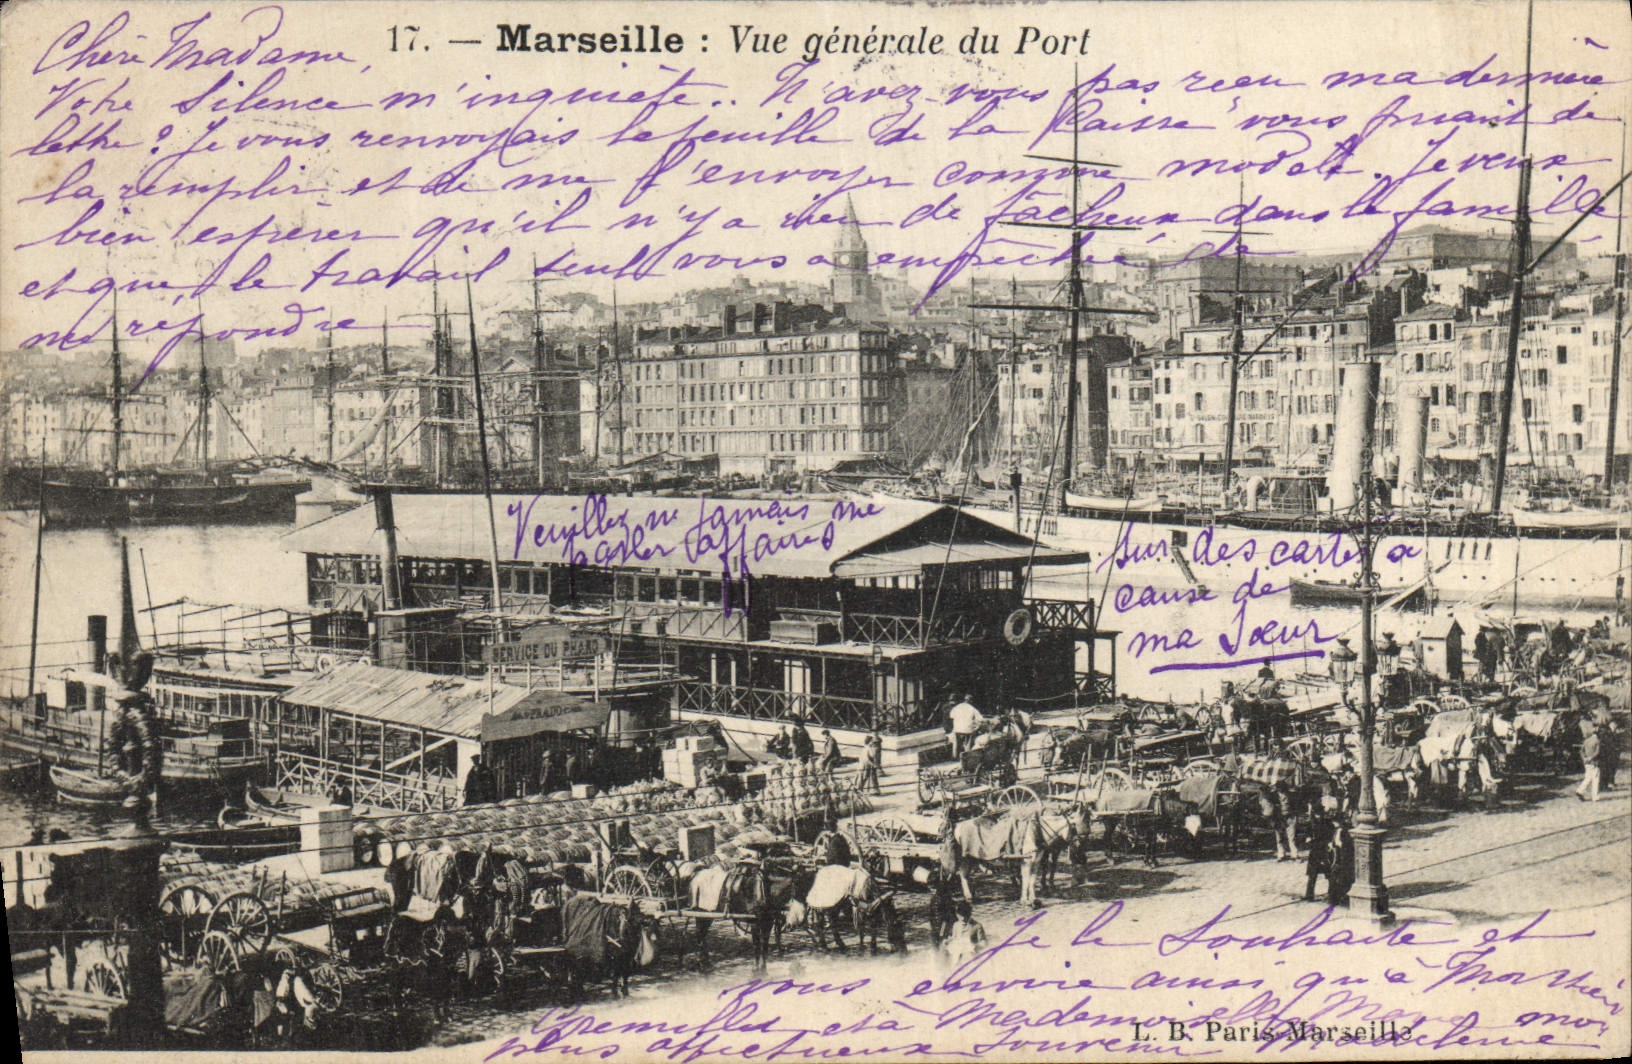 17. — Marseille : Vue générale du Port
Chère Madame,
Votre silence m'inquiète.. N'avez-vous pas reçu ma dernière
lettre? Je vous renvoyais la feuille de la Caisse vous priant de
la remplir et de me l'envoyer comme modèle. Je veux
bien espérer qu'il n'y a rien de fâcheux dans la famille
et que le travail seul vous a empêchée de
me répondre
Veuillez ne jamais me
parler affaires
sur des cartes à
cause de
ma Sœur
SERVICE DU PHARO
Je le souhaite et
vous envoie ainsi qu'à Monsieur
et à Mademoiselle mon
plus affectueux souvenir
L. B. Paris-Marseille